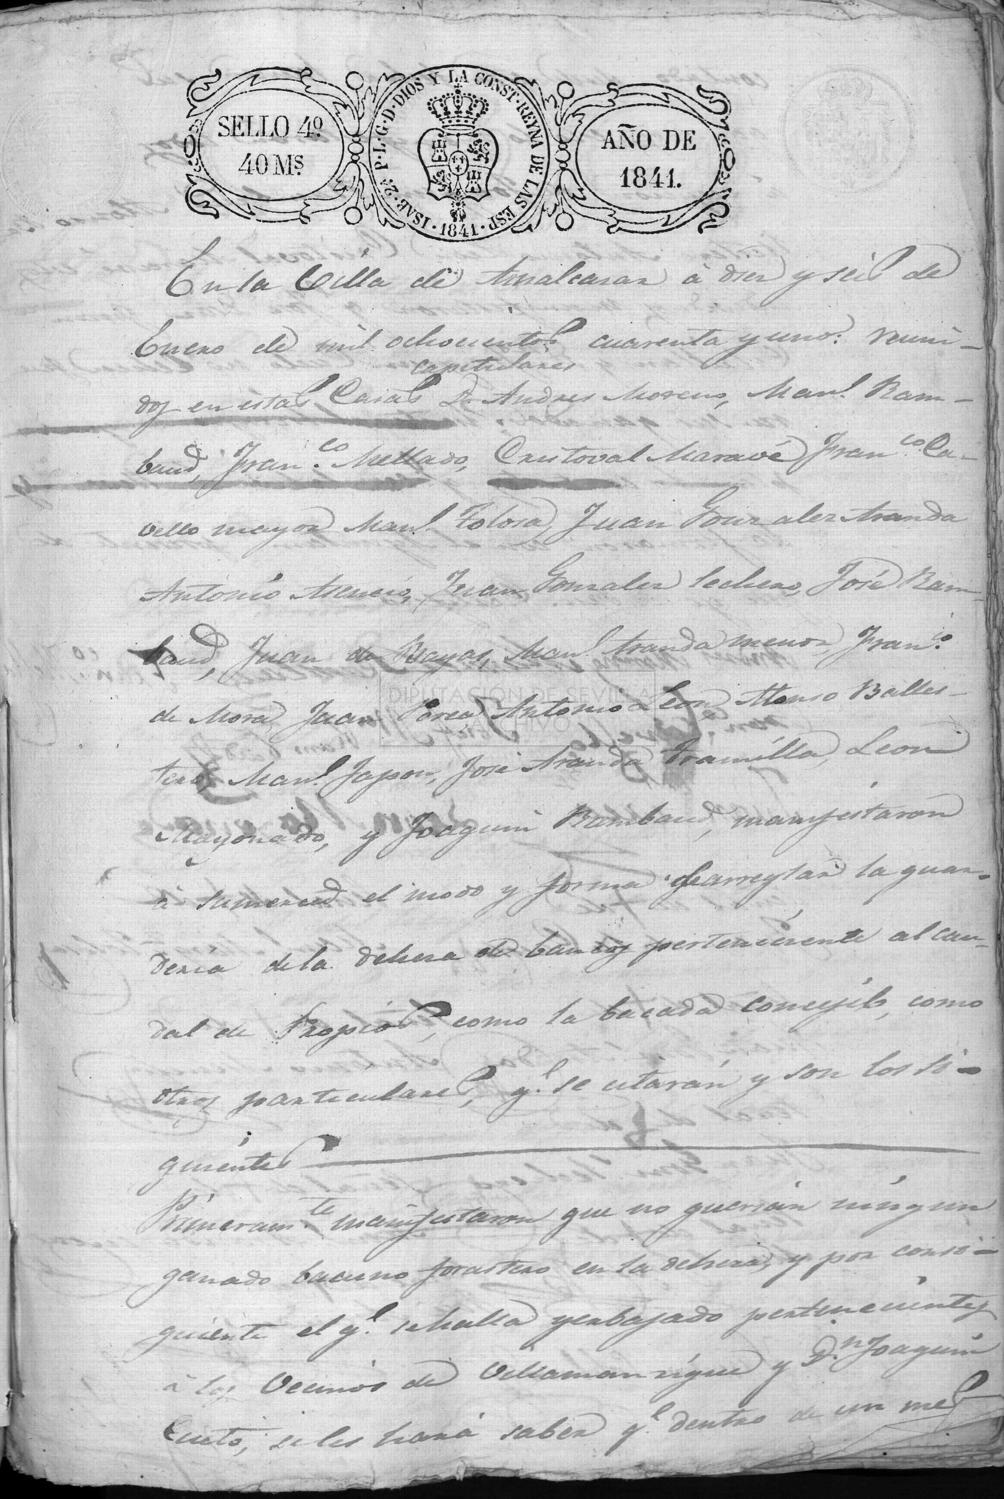 SELLO 4º
40 Mˢ
ISAB. 2ª P. L. G. D. DIOS Y LA CONST. REYNA DE LAS ESP.
1841
AÑO DE
1841.
En la Villa de Aznalcazar á diez y seis de
Enero de mil ochocientos cuarenta y uno: reuni-
capitulares
dos en estas Casas D. Andres Moreno, Manl. Ram-
baud, Franco. Mellado, Cristoval Maravé Franco. Ca-
vello mayor Manl. Tolosa, Juan Gonzalez Aranda
Antonio Asencio, Juan Gonzalez lechero, José Ram-
baud, Juan de Reyas, Manl. Aranda menor, Franco.
de Mora, Juan Perea Antonio Leon Alonso Balles-
tero, Manl. Japon, José Aranda Framilla, Leon
Mayorado, y Joaquin Rambaud, manifestaron
a sumerced el modo y forma de arreglar la guar-
deria de la dehesa de banco perteneciente al cau-
dal de Propios, como la bacada concejil, como
otros particulares, q. se citarán y son los si-
guientes
Primeramte. manifestaron que no querian ningun
ganado bacuno forastero en la dehesa, y por consi-
guiente el q. se halla yerbajado pertenecientes
á los Vecinos de Villamanrique y Dn. Joaquin
Cueto, se les hará saber q. dentro de un mes
DIPUTACIÓN DE SEVILLA
ARCHIVO